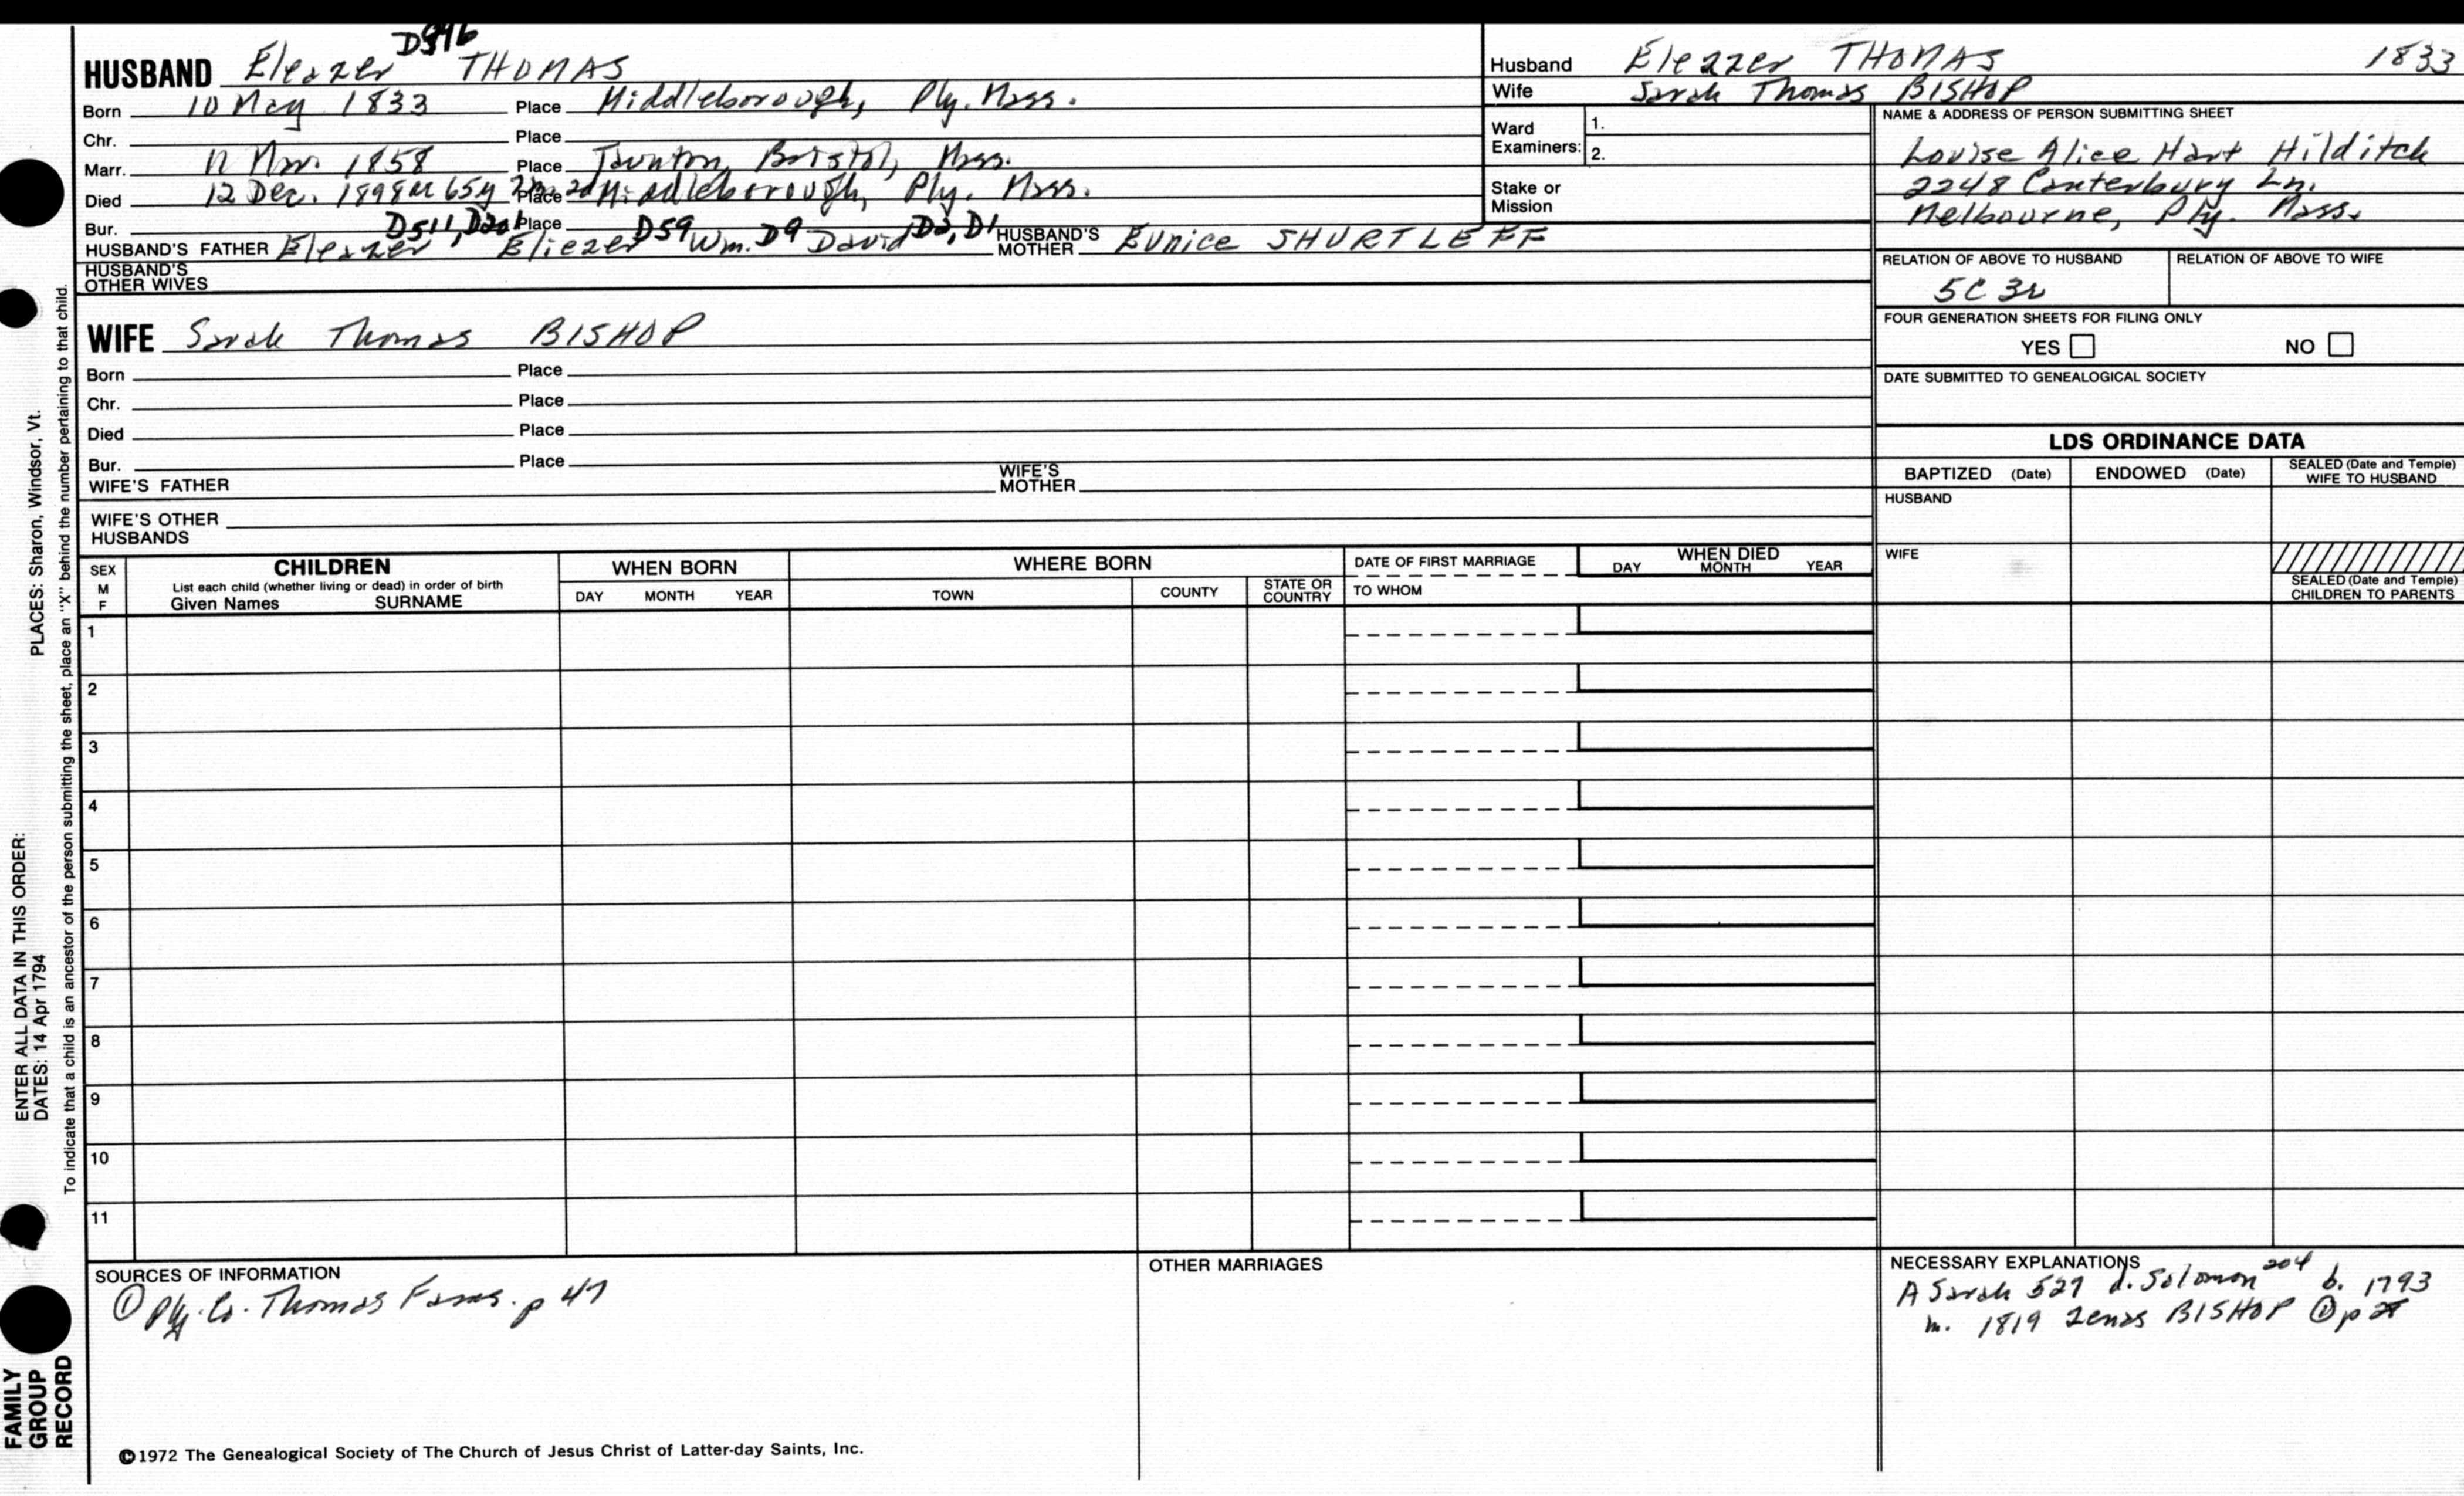 D596
HUSBAND Eleazer THOMAS
Born 10 May 1833 Place Middleborough, Ply. Mass.
Chr. Place
Marr. Nov. 1858 Place Taunton, Bristol, Mass.
Died 12 Dec. 1898 65y Place Middleborough, Ply. Mass.
Bur. Place
D511, D59 D9 D2, D1
HUSBAND'S FATHER Eleazer Eliezer Wm. David HUSBAND'S MOTHER Eunice SHURTLEFF
HUSBAND'S OTHER WIVES
WIFE Sarah Thomas BISHOP
Born Place
Chr. Place
Died Place
Bur. Place
WIFE'S FATHER WIFE'S MOTHER
WIFE'S OTHER HUSBANDS
Husband Eleazer THOMAS 1833
Wife Sarah Thomas BISHOP
Ward Examiners: 1.
2.
Stake or Mission
NAME & ADDRESS OF PERSON SUBMITTING SHEET
Louise Alice Hart Hilditch
2248 Canterbury Ln.
Melbourne, Ply. Mass.
RELATION OF ABOVE TO HUSBAND RELATION OF ABOVE TO WIFE
5C 3r
FOUR GENERATION SHEETS FOR FILING ONLY
YES NO
DATE SUBMITTED TO GENEALOGICAL SOCIETY
LDS ORDINANCE DATA
BAPTIZED (Date) ENDOWED (Date) SEALED (Date and Temple) WIFE TO HUSBAND
HUSBAND
WIFE
SEALED (Date and Temple) CHILDREN TO PARENTS
SEX M F
CHILDREN
List each child (whether living or dead) in order of birth
Given Names SURNAME
WHEN BORN
DAY MONTH YEAR
WHERE BORN
TOWN COUNTY STATE OR COUNTRY
DATE OF FIRST MARRIAGE
TO WHOM
WHEN DIED
DAY MONTH YEAR
1
2
3
4
5
6
7
8
9
10
11
SOURCES OF INFORMATION
① Ply. Co. Thomas Fams. p 47
OTHER MARRIAGES
NECESSARY EXPLANATIONS
A Sarah 527 d. Solomon 204 b. 1793
m. 1819 Zenas BISHOP ① p
©1972 The Genealogical Society of The Church of Jesus Christ of Latter-day Saints, Inc.
ENTER ALL DATA IN THIS ORDER:
DATES: 14 Apr 1794 PLACES: Sharon, Windsor, Vt.
To indicate that a child is an ancestor of the person submitting the sheet, place an "X" behind the number pertaining to that child.
FAMILY
GROUP
RECORD